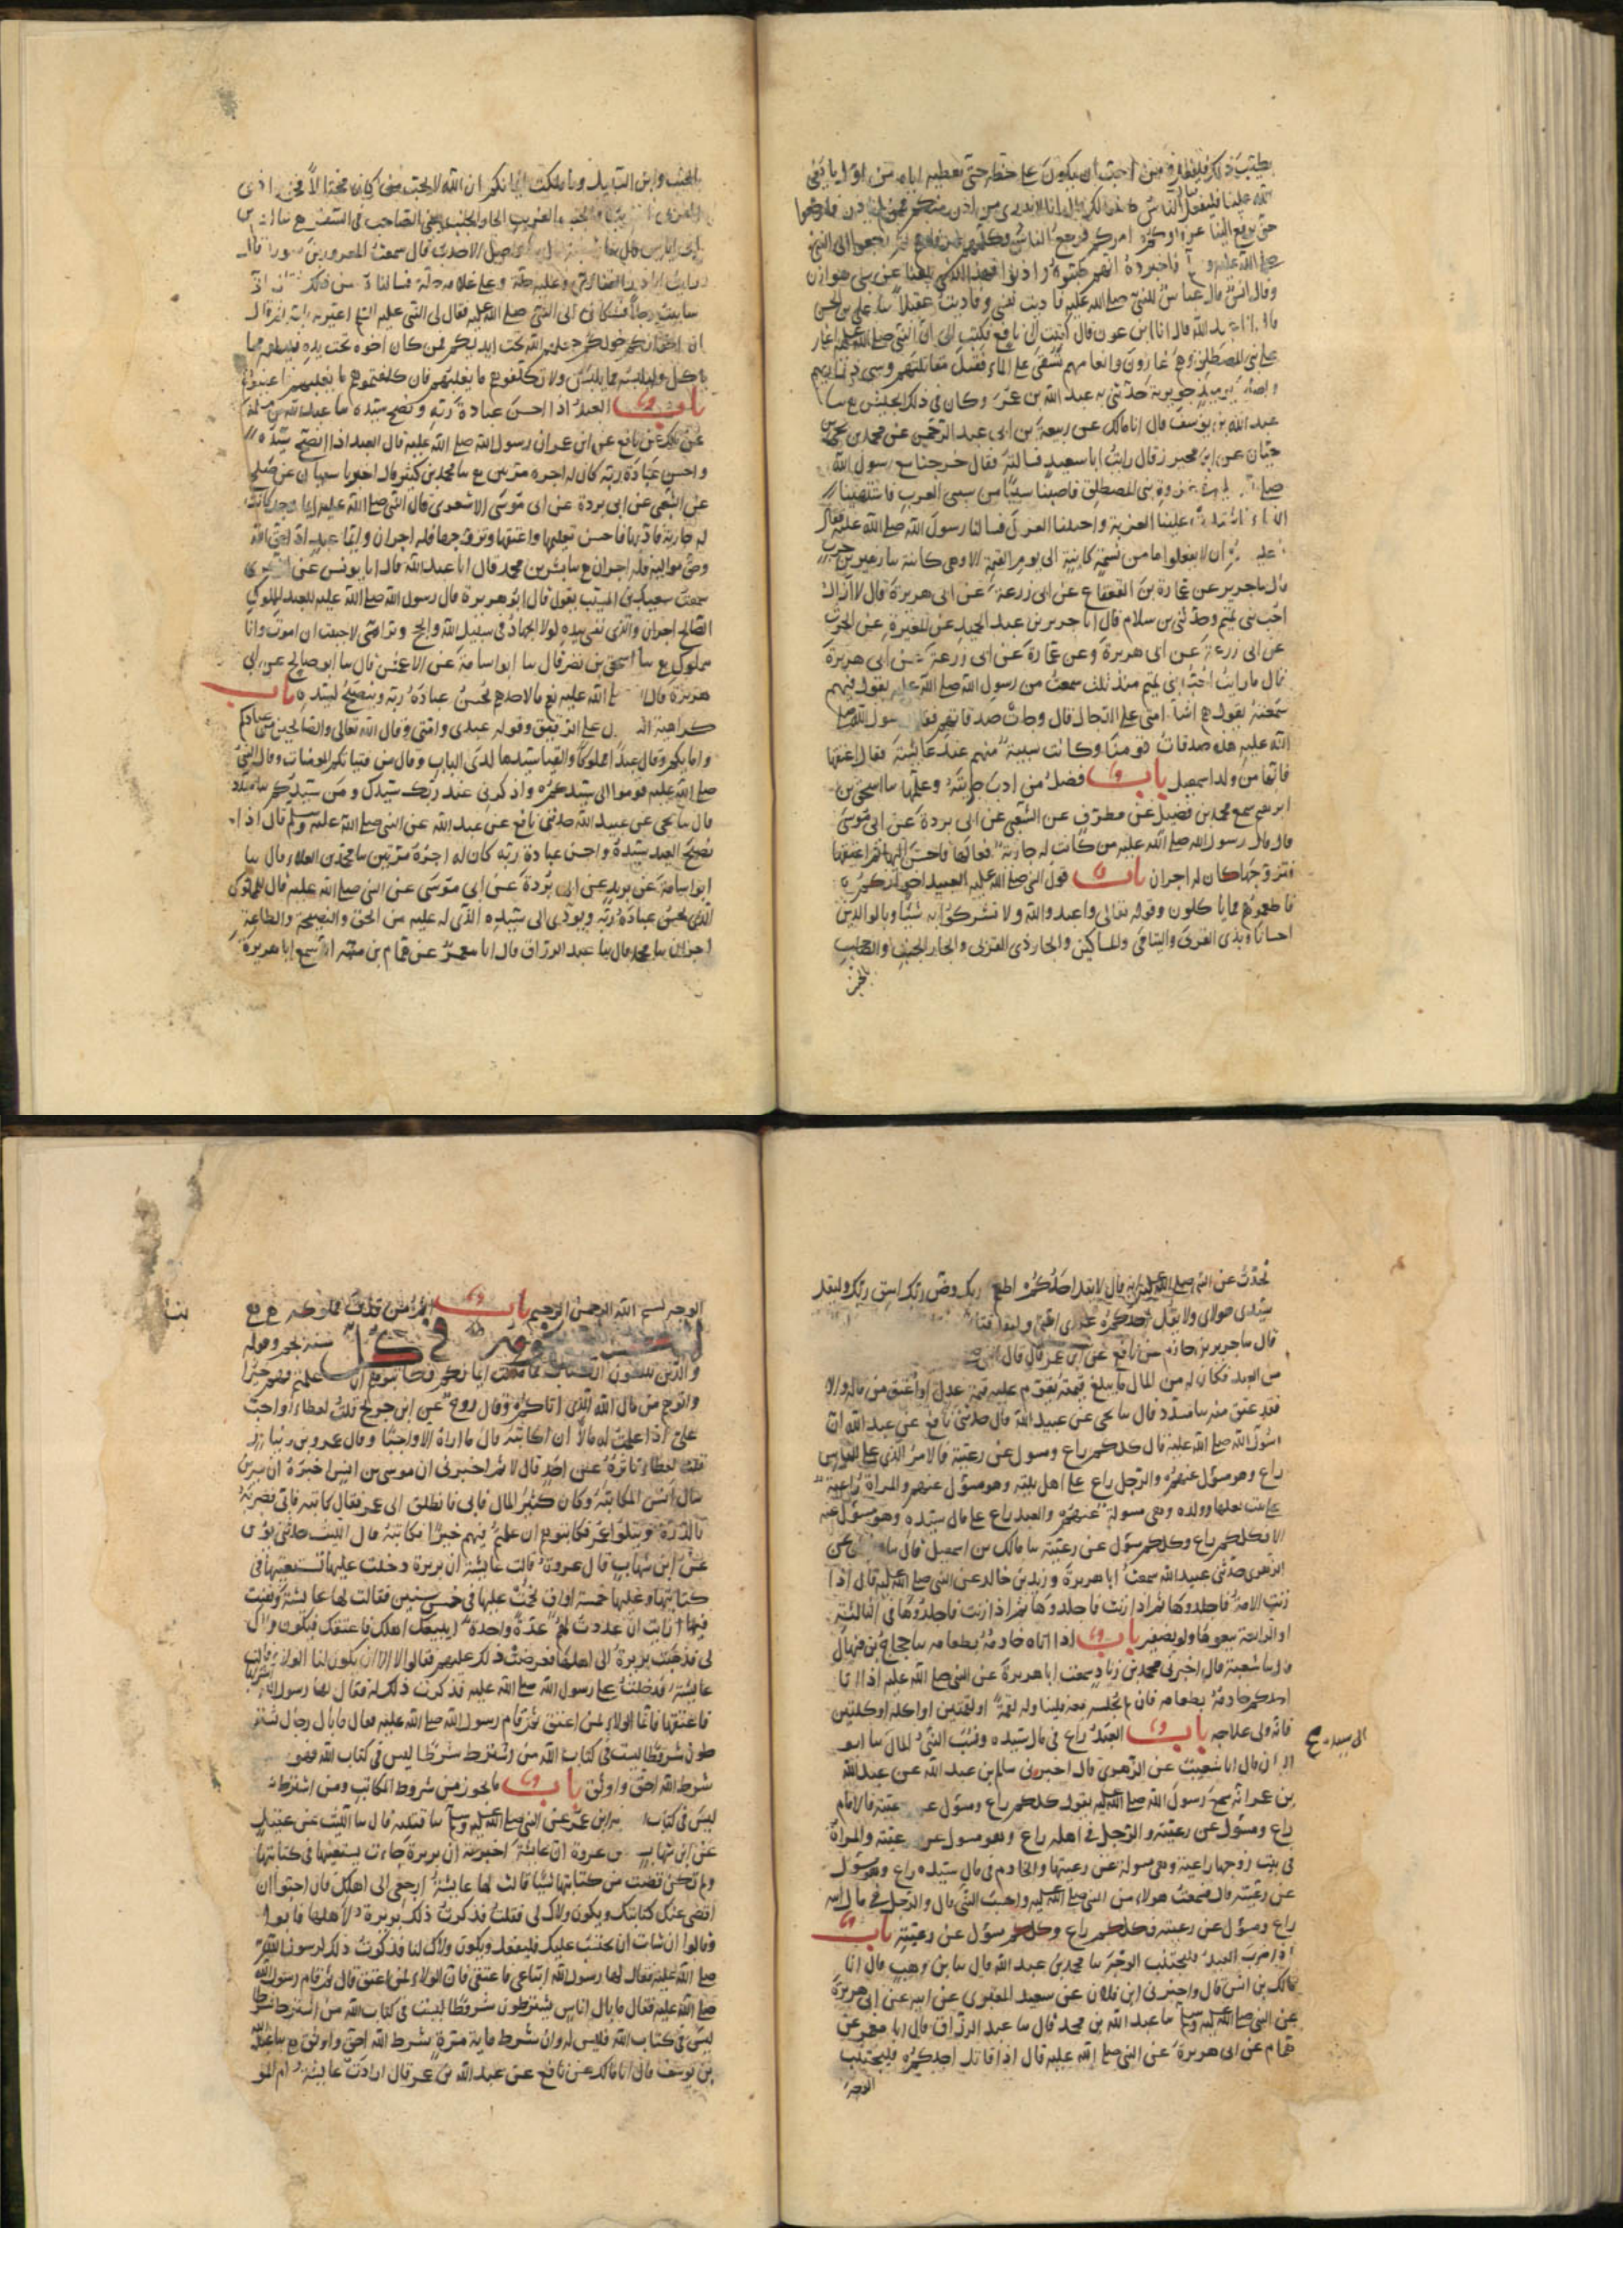 يطيب ذلك فليفعل ومن احب ان يكون على حظه حتى نعطيه اياه من اول ما يفئ
الله علينا فليفعل فقال الناس طيبنا لك ذلك قال انا لا ندرى من اذن منكم ممن لم ياذن فارجعوا
حتى يرفع الينا عرفاوكم امركم فرجع الناس وكلمهم ثم رجعوا الى النبى
صلى الله عليه و فاخبروه انهم طيبوا واذنوا فهذا الذى بلغنا عن سبى هوازن
وقال انس قال عباس للنبى صلى الله عليه فاديت نفسى وفاديت عقيلا سا على بن الحسن
قال انا عبد الله قال انا ابن عون قال كتبت الى نافع فكتب الى ان النبى صلى الله عليه اغار
على بنى المصطلق وهم غارون وانعامهم تسقى على الماء فقتل مقاتلتهم وسبى ذراريهم
واصاب يوميذ جويرية حدثنى به عبد الله بن عمر وكان فى ذلك الجيش ع سا
عبد الله بن يوسف قال انا مالك عن ربيعة بن ابى عبد الرحمن عن محمد بن يحيى بن
حبان عن ابن محيريز قال رايت ابا سعيد فسالته فقال خرجنا مع رسول الله
صلى فى غزوة بنى المصطلق فاصبنا سبيا من سبى العرب فاشتهينا
النساء فاشتدت علينا العزبة واحببنا العزل فسالنا رسول الله صلى الله عليه فقال
ما عليكم ان لا تفعلوا ما من نسمة كاينة الى يوم القيمة الا وهى كاينة سا زهير بن حرب
قال سا جرير عن عمارة بن القعقاع عن ابى زرعة عن ابى هريرة قال لا ازال
احب بنى تميم وحدثنى بن سلام قال انا جرير بن عبد الحميد عن المغيرة عن الحرث
عن ابى زرعة عن ابى هريرة وعن عمارة عن ابى زرعة عن ابى هريرة
قال ما زلت احب بنى تميم منذ ثلث سمعت من رسول الله صلى الله عليه يقول فيهم
سمعته يقول هم اشد امتى على الدجال قال وجات صدقاتهم فقال رسول الله صلى
الله عليه هذه صدقات قومنا وكانت سبية منهم عند عايشة فقال اعتقها
فانها من ولد اسمعيل باب فضل من ادب جاريته وعلمها سا اسحق بن
ابرهيم سمع محمد بن فضيل عن مطرف عن الشعبى عن ابى بردة عن ابى موسى
قال قال رسول الله صلى الله عليه من كانت له جارية فعالها فاحسن اليها ثم اعتقها
وتزوجها كان له اجران باب قول النبى صلى الله عليه العبيد اخوانكم
فاطعموهم مما تاكلون وقوله تعالى واعبدوا الله ولا تشركوا به شيئا وبالوالدين
احسانا وبذى القربى واليتامى والمساكين والجار ذى القربى والجار الجنب والصاحب
بالجنب
بالجنب وابن السبيل وما ملكت ايمانكم ان الله لا يحب من كان مختالا فخورا ذى
القربى القريب والجنب الغريب الجار الجنب يعنى الصاحب فى السفر ع سا ادم بن
ابى اياس قال سا شعبة سا واصل الاحدب قال سمعت المعرور بن سويد قال
رايت ابا ذر الغفارى وعليه حلة وعلى غلامه حلة فسالناه عن ذلك فقال انى
ساببت رجلا فشكانى الى النبى صلى الله عليه فقال لى النبى عليه السلم اعيرته بامه ثم قال
ان اخوانكم خولكم جعلهم الله تحت ايديكم فمن كان اخوه تحت يده فليطعمه مما
ياكل وليلبسه مما يلبس ولا تكلفوهم ما يغلبهم فان كلفتموهم ما يغلبهم فاعينوهم
باب العبد اذا احسن عبادة ربه ونصح سيده سا عبد الله بن مسلمة
عن ملك عن نافع عن ابن عمر ان رسول الله صلى الله عليه قال العبد اذا نصح سيده
واحسن عبادة ربه كان له اجره مرتين ع سا محمد بن كثير قال اخبرنا سفيان عن صلح
عن الشعبى عن ابى بردة عن ابى موسى الاشعرى قال النبى صلى الله عليه ايما رجل كانت
له جارية فادبها فاحسن تعليمها واعتقها وتزوجها فله اجران وايما عبد ادى حق الله
وحق مواليه فله اجران ع سا بشر بن محمد قال انا عبد الله قال انا يونس عن الزهرى
سمعت سعيد بن المسيب يقول قال ابو هريرة قال رسول الله صلى الله عليه للعبد المملوك
الصالح اجران والذى نفسى بيده لولا الجهاد فى سبيل الله والحج وبر امى لاحببت ان اموت وانا
مملوك ع سا اسحق بن نصر قال سا ابو اسامة عن الاعمش قال سا ابو صالح عن ابى
هريرة قال صلى الله عليه نعم ما لاحدهم يحسن عبادة ربه وينصح لسيده باب
كراهية التطاول على الرقيق وقوله عبدى وامتى وقال الله تعالى والصالحين من عبادكم
وامايكم وقال عبدا مملوكا والفيا سيدها لدى الباب وقال من فتياتكم المومنات وقال النبى
صلى الله عليه قوموا الى سيدكم واذكرنى عند ربك سيدك ومن سيدكم سا مسدد
قال سا يحيى عن عبيد الله حدثنى نافع عن عبد الله عن النبى صلى الله عليه وسلم قال اذا
نصح العبد سيده واحسن عبادة ربه كان له اجره مرتين سا محمد بن العلاء قال سا
ابو اسامة عن بريد عن ابى بردة عن ابى موسى عن النبى صلى الله عليه قال المملوك
الذى يحسن عبادة ربه ويودى الى سيده الذى له عليه من الحق والنصيحة والطاعة
اجران سا محمد قال سا عبد الرزاق قال انا معمر عن همام بن منبه انه سمع ابا هريرة
يحدث عن النبى صلى الله عليه انه قال لا يقل احدكم اطعم ربك وضئ ربك اسق ربك وليقل
سيدى مولاى ولا يقل احدكم عبدى امتى وليقل فتاى
قال سا جرير بن حازم عن نافع عن ابن عمر قال قال النبى
من العبد فكان له من المال ما يبلغ قيمته يقوم عليه قيمة عدل واعتق من ماله والا
فقد عتق منه سا مسدد قال سا يحيى عن عبيد الله قال حدثنى نافع عن عبد الله ان
رسول الله صلى الله عليه قال كلكم راع ومسول عن رعيته فالامير الذى على الناس
راع وهو مسول عنهم والرجل راع على اهل بيته وهو مسول عنهم والمراة راعية
على بيت بعلها وولده وهى مسولة عنهم والعبد راع على مال سيده وهو مسول عنه
الا فكلكم راع وكلكم مسول عن رعيته سا مالك بن اسمعيل قال سا سفين عن
الزهرى حدثنى عبيد الله سمعت ابا هريرة وزيد بن خالد عن النبى صلى الله عليه قال اذا
زنت الامة فاجلدوها ثم اذا زنت فاجلدوها ثم اذا زنت فاجلدوها فى الثالثة
او الرابعة بيعوها ولو بضفير باب اذا اتاه خادمه بطعامه سا حجاج بن منهال
قال سا شعبة قال اخبرنى محمد بن زياد سمعت ابا هريرة عن النبى صلى الله عليه اذا اتى
احدكم خادمه بطعامه فان لم يجلسه معه فليناوله لقمة او لقمتين او اكلة او اكلتين
فانه ولى علاجه باب العبد راع فى مال سيده ونسب النبى المال سا ابو
الى سيده صح
اليمان قال انا شعيب عن الزهرى قال اخبرنى سالم بن عبد الله عن عبد الله
بن عمر انه سمع رسول الله صلى الله عليه يقول كلكم راع ومسول عن رعيته فالامام
راع ومسول عن رعيته والرجل فى اهله راع وهو مسول عن رعيته والمراة
فى بيت زوجها راعية وهى مسولة عن رعيتها والخادم فى مال سيده راع وهو مسول
عن رعيته قال فسمعت هولاء من النبى صلى الله عليه واحسب النبى قال والرجل فى مال ابيه
راع ومسول عن رعيته وكلكم راع وكلكم مسول عن رعيته باب
اذا ضرب العبد فليجتنب الوجه سا محمد بن عبد الله قال سا بن وهب قال انا
مالك بن انس قال واخبرنى ابن فلان عن سعيد المقبرى عن ابيه عن ابى هريرة
عن النبى صلى الله عليه وسلم سا عبد الله بن محمد قال سا عبد الرزاق قال انا معمر عن
همام عن ابى هريرة عن النبى صلى الله عليه قال اذا قاتل احدكم فليجتنب
الوجه
الوجه بسم الله الرحمن الرحيم باب اثم من قذف مملوكه
سنة نجم وقوله
والذين يبتغون الكتاب مما ملكت ايمانكم فكاتبوهم ان علمتم فيهم خيرا
واتوهم من مال الله الذى اتاكم وقال روح عن ابن جريج قلت لعطاء اواجب
على اذا علمت له مالا ان اكاتبه قال ما اراه الا واجبا وقال عمرو بن دينار
قلت لعطاء تاثره عن احد قال لا ثم اخبرنى ان موسى بن انس اخبره ان سيرين
سال انس المكاتبة وكان كثير المال فابى فانطلق الى عمر فقال كاتبه فابى فضربه
بالدرة ويتلو عمر فكاتبوهم ان علمتم فيهم خيرا فكاتبه قال الليث حدثنى يونس
عن ابن شهاب قال عروة قالت عايشة ان بريرة دخلت عليها تستعينها فى
كتابتها وعليها خمسة اواق نجمت عليها فى خمس سنين فقالت لها عايشة ونفست
فيها ارايت ان عددت لهم عدة واحدة ايبيعك اهلك فاعتقك فيكون ولاك
لى فذهبت بريرة الى اهلها فعرضت ذلك عليهم فقالوا لا الا ان يكون لنا الولاء قالت
عايشة فدخلت على رسول الله صلى الله عليه فذكرت ذلك له فقال لها رسول الله اشتريها
فاعتقيها فانما الولاء لمن اعتق ثم قام رسول الله صلى الله عليه فقال ما بال رجال يشتر
طون شروطا ليست فى كتاب الله من اشترط شرطا ليس فى كتاب الله فهو
شرط الله احق واوثق باب ما يجوز من شروط المكاتب ومن اشترط
ليس فى كتاب ابن عمر عن النبى صلى الله عليه وسلم سا قتيبة قال سا الليث عن عقيل
عن ابن شهاب عن عروة ان عايشة اخبرته ان بريرة جاءت تستعينها فى كتابتها
ولم تكن قضت من كتابتها شيئا قالت لها عايشة ارجعى الى اهلك فان احبوا ان
اقضى عنك كتابتك ويكون ولاك لى فعلت فذكرت ذلك بريرة لاهلها فابوا
وقالوا ان شات ان تحتسب عليك فلتفعل ويكون ولاك لنا فذكرت ذلك لرسول الله
صلى الله عليه فقال لها رسول الله ابتاعى فاعتقى فان الولاء لمن اعتق قال ثم قام رسول الله
صلى الله عليه فقال ما بال اناس يشترطون شروطا ليست فى كتاب الله من اشترط شرطا
ليس فى كتاب الله فليس له وان شرط ماية مرة شرط الله احق واوثق ع سا عبد الله
بن يوسف قال انا مالك عن نافع عن عبد الله بن عمر قال ارادت عايشة ام المو